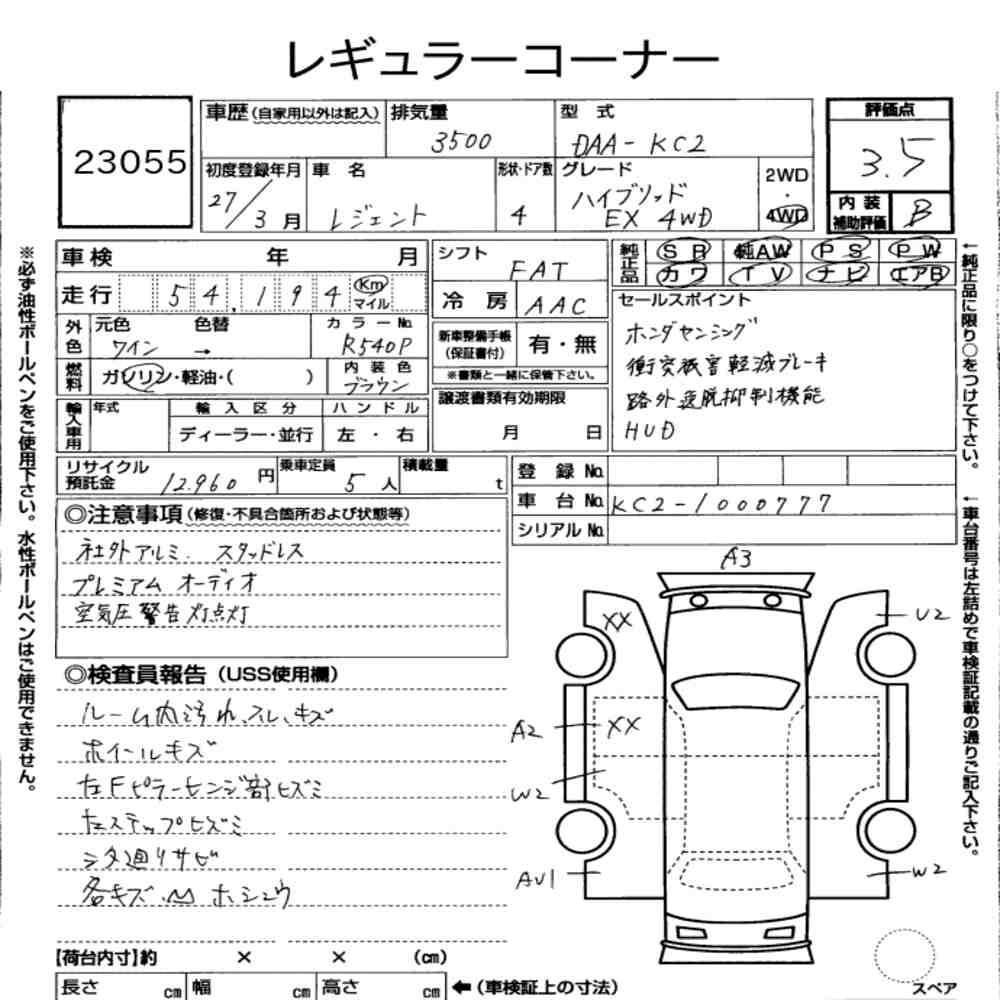 レギュラーコーナー
23055
車歴(自家用以外は記入) 排気量 3500
型式 DAA-KC2
評価点 3.5
内装補助評価 B
初度登録年月 27/3月
車名 レジェント
形状・ドア数 4
グレード ハイブリッド EX 4WD
2WD・4WD
車検 年 月
走行 54,194 Km マイル
シフト FAT
冷房 AAC
純正品 SR 純AW PS PW
カワ TV ナビ エアB
外色 元色 ワイン → 色替 カラーNo. R540P
燃料 ガソリン・軽油・( )
内装色 ブラウン
輸入車用 年式 輸入区分 ディーラー・並行 ハンドル 左・右
新車整備手帳(保証書付) 有・無
※書類と一緒に保管下さい。
譲渡書類有効期限 月 日
セールスポイント
ホンダセンシング
衝突被害軽減ブレーキ
路外逸脱抑制機能
HUD
リサイクル預託金 12.960 円
乗車定員 5人
積載量 t
登録No.
車台No. KC2-1000777
シリアルNo.
◎注意事項(修復・不具合箇所および状態等)
社外アルミ. スタッドレス
プレミアム オーディオ
空気圧警告灯点灯
◎検査員報告(USS使用欄)
ルーム内汚れ、スレ、キズ
ホイールキズ
左Fピラーヒンジ部ヒズミ
左ステップヒズミ
シタ廻りサビ
各キズ. 凹 ホシュウ
A3
XX
U2
A2
XX
W2
AV1
W2
スペア
【荷台内寸】約 × × (cm)
長さ cm 幅 cm 高さ cm ←(車検証上の寸法)
※必ず油性ボールペンをご使用下さい。水性ボールペンはご使用できません。
←純正品に限り○をつけて下さい。
←車台番号は左詰めで車検証記載の通りご記入下さい。